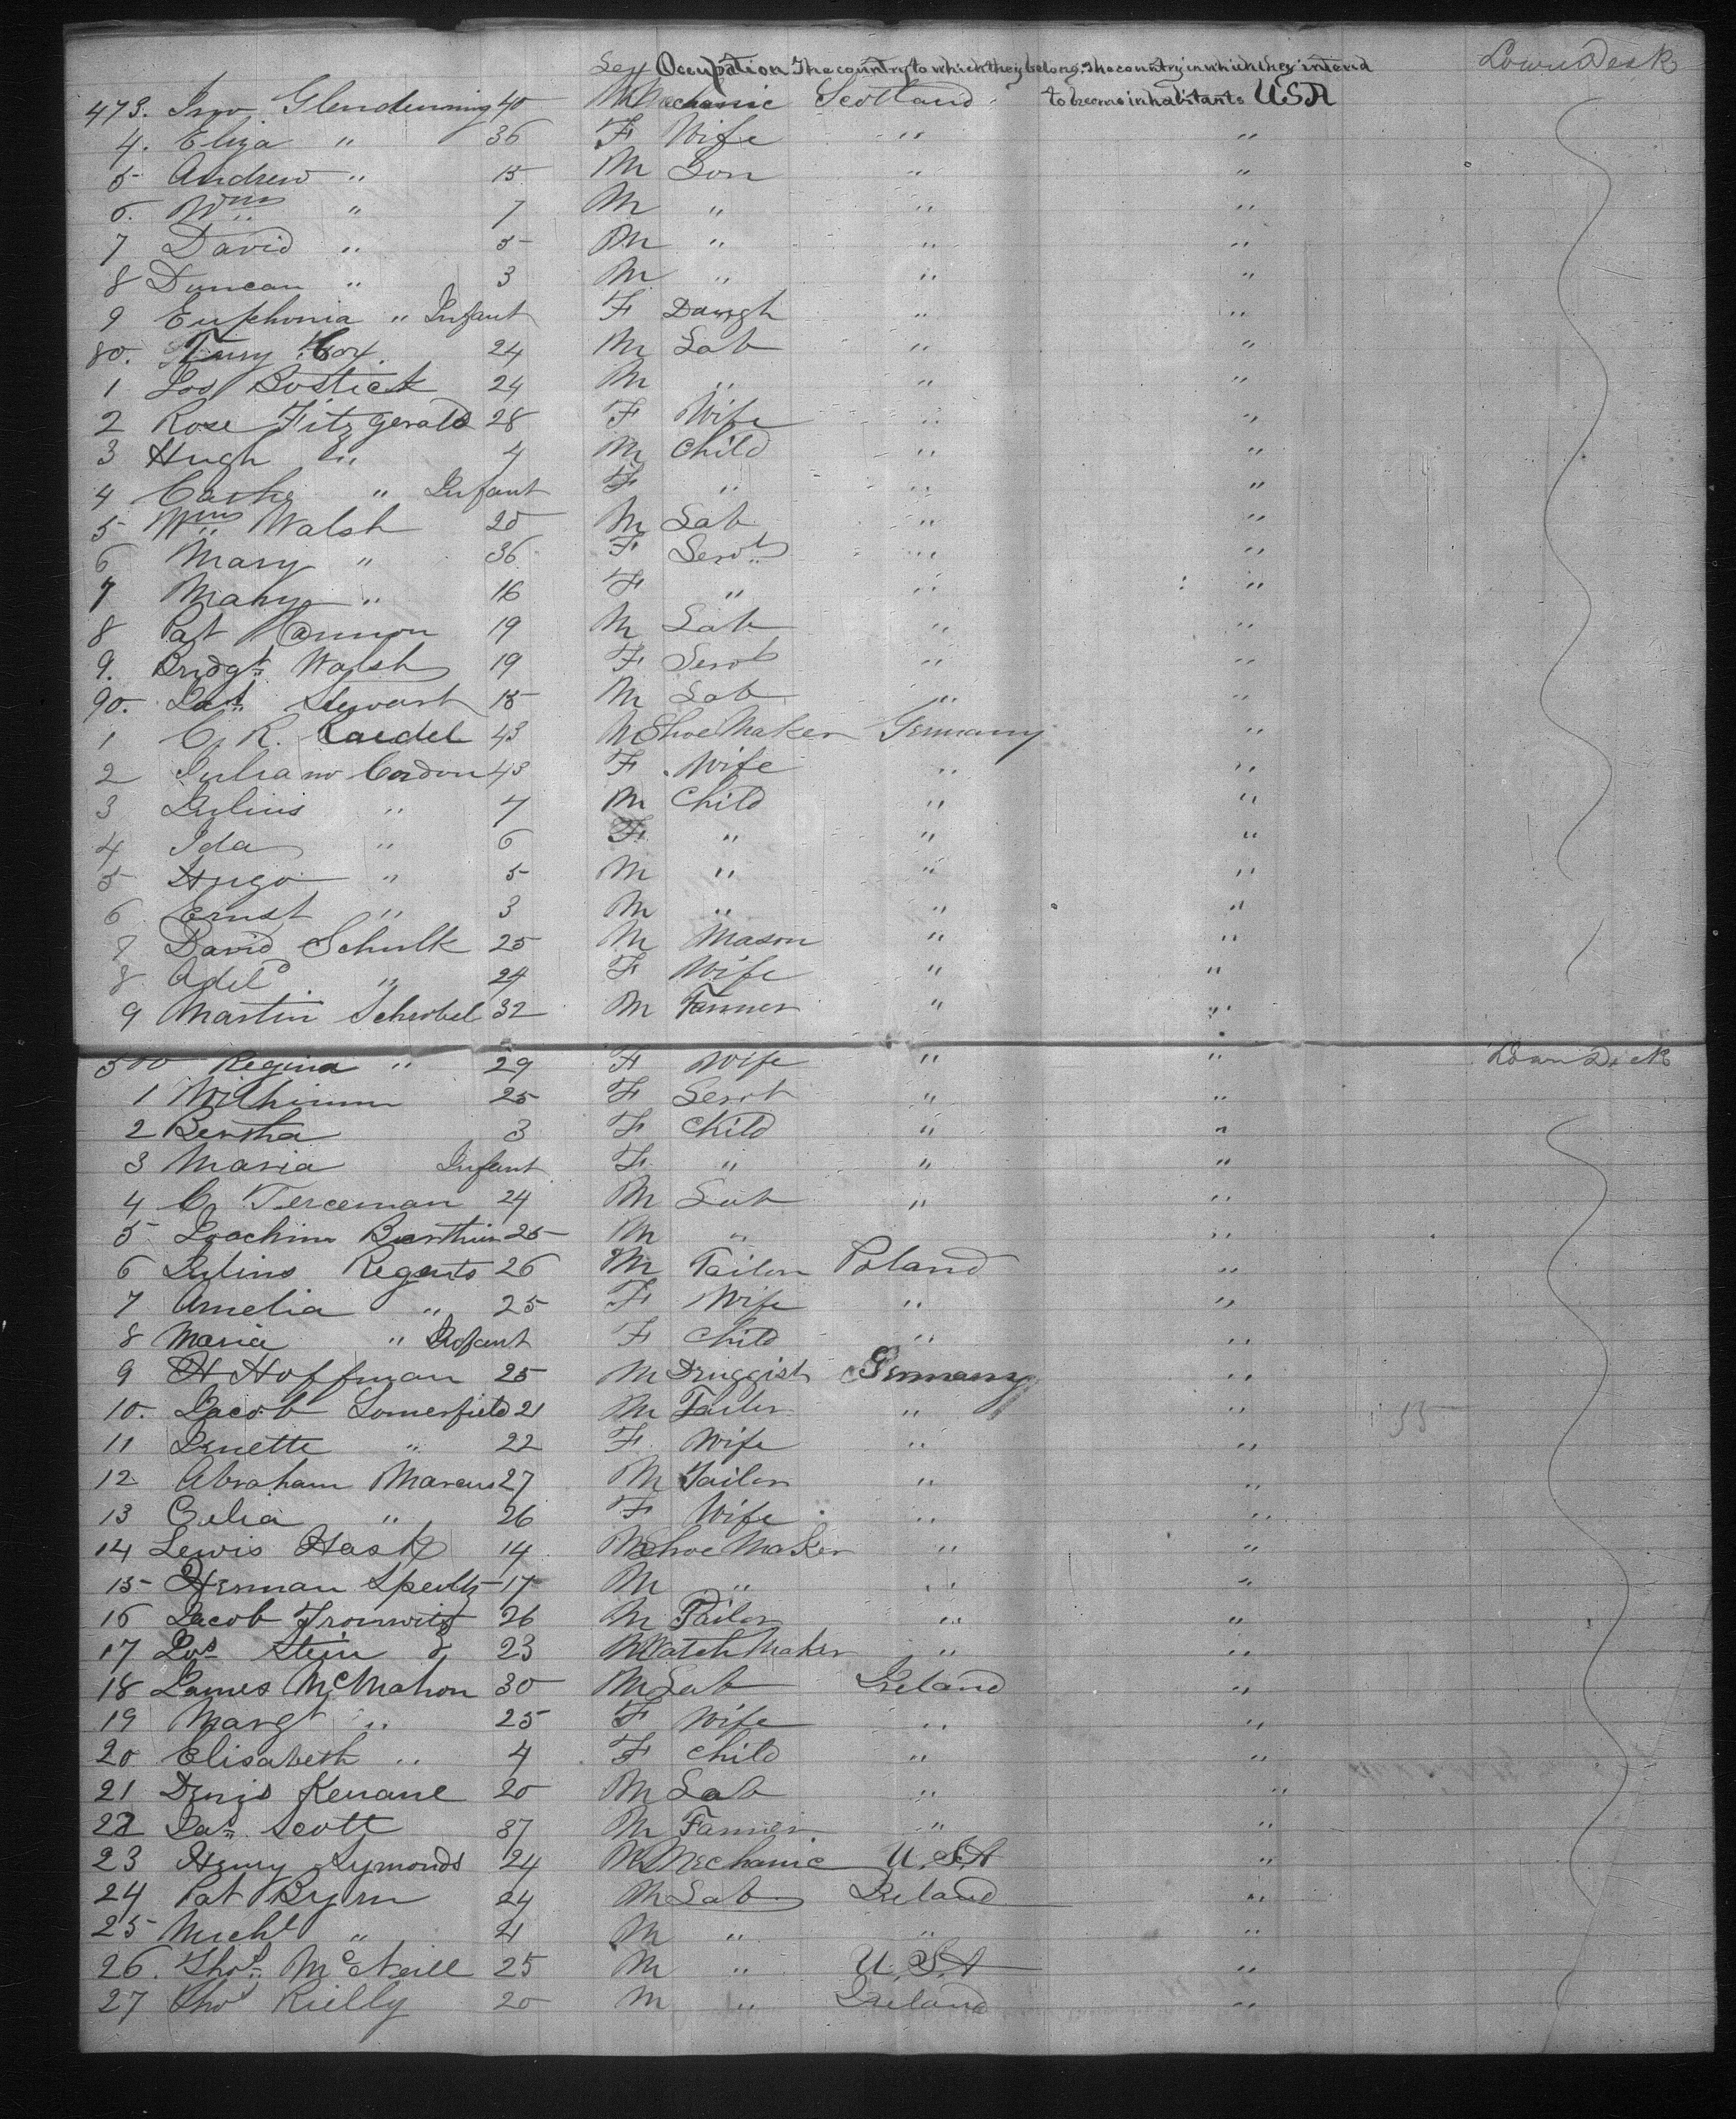 Sex Occupation The country to which they belong. The country in which they intend Lower Deck
473. Jno. Glendinning 40 M Mechanic Scotland to become inhabitants USA
4. Eliza " 36 F Wife " "
5 Andrew " 15 M Son " "
6. Wm " 7 M " " "
7 David " 5 M " " "
8 Duncan " 3 M " " "
9 Euphonia " Infant F Daugh " "
80. Cox 24 M Lab " "
1 Jos Bostick 24 M " " "
2 Rose Fitzgerald 28 F Wife " "
3 Hugh " 4 M Child " "
4 Cathe " Infant F " " "
5 Wm Walsh 20 M Lab " "
6 Mary " 36 F Servt " "
7 Mary " 16 F " " "
8 Pat Cannon 19 M Lab " "
9. Bridgt Walsh 19 F Servt " "
90. Jas Stewart 18 M Lab " "
1 C. R. Caedel 43 M Shoe Maker Germany "
2 Cordon 43 F Wife " "
3 Julius " 7 M Child " "
4 Ida " 6 F " " "
5 Hugo " 5 M " " "
6 Ernst " 3 M " " "
7 David Schulk 25 M Mason " "
8 Adel " 24 F Wife " "
9 Martin Schrobel 32 M Farmer " "
500 Regina " 29 F Wife " " Lower Deck
1 25 F Servt " "
2 Bertha 3 F Child " "
3 Maria Infant F " " "
4 C Terceman 24 M Lab " "
5 Joachim 25 M " " "
6 Julius Regents 26 M Tailor Poland "
7 Amelia " 25 F Wife " "
8 Maria " Infant F Child " "
9 H Hoffman 25 M Druggist Germany "
10. Jacob Somerfield 21 M Tailor " " 53
11 Jenette " 22 F Wife " "
12 Abraham Marcus 27 M Tailor " "
13 Celia " 26 F Wife " "
14 Lewis Hask 14 M Shoe Maker " "
15 Herman 17 M " " "
16 Jacob Fronwitz 26 M Tailor " "
17 Jos Stein 23 M Watch Maker " "
18 James McMahon 30 M Lab Ireland "
19 Margt " 25 F Wife " "
20 Elisabeth " 4 F Child " "
21 Denis Keuane 20 M Lab " "
22 Jas Scott 37 M Farmer " "
23 Henry Symonds 24 M Mechanic U.S.A "
24 Pat Byrn 24 M Lab Ireland "
25 Michl " 21 M " " "
26. Thos McNeill 25 M " U.S.A "
27 Thos Rielly 20 M " Ireland "